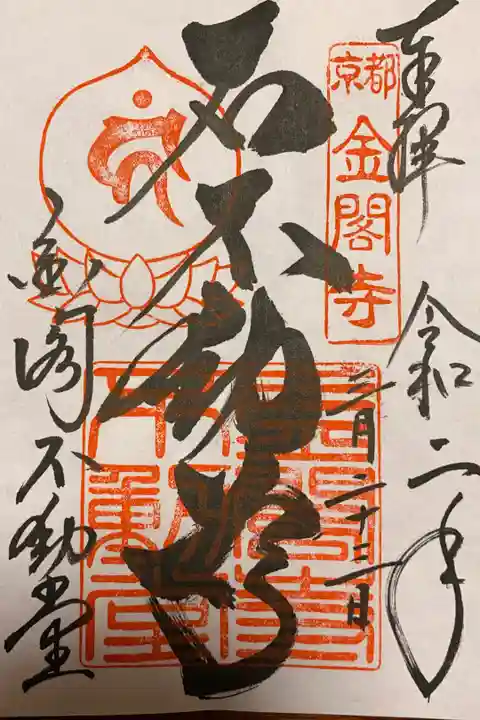 奉拝
令和二年
三月二十二日
京都
金閣寺
石不動尊
金閣不動堂